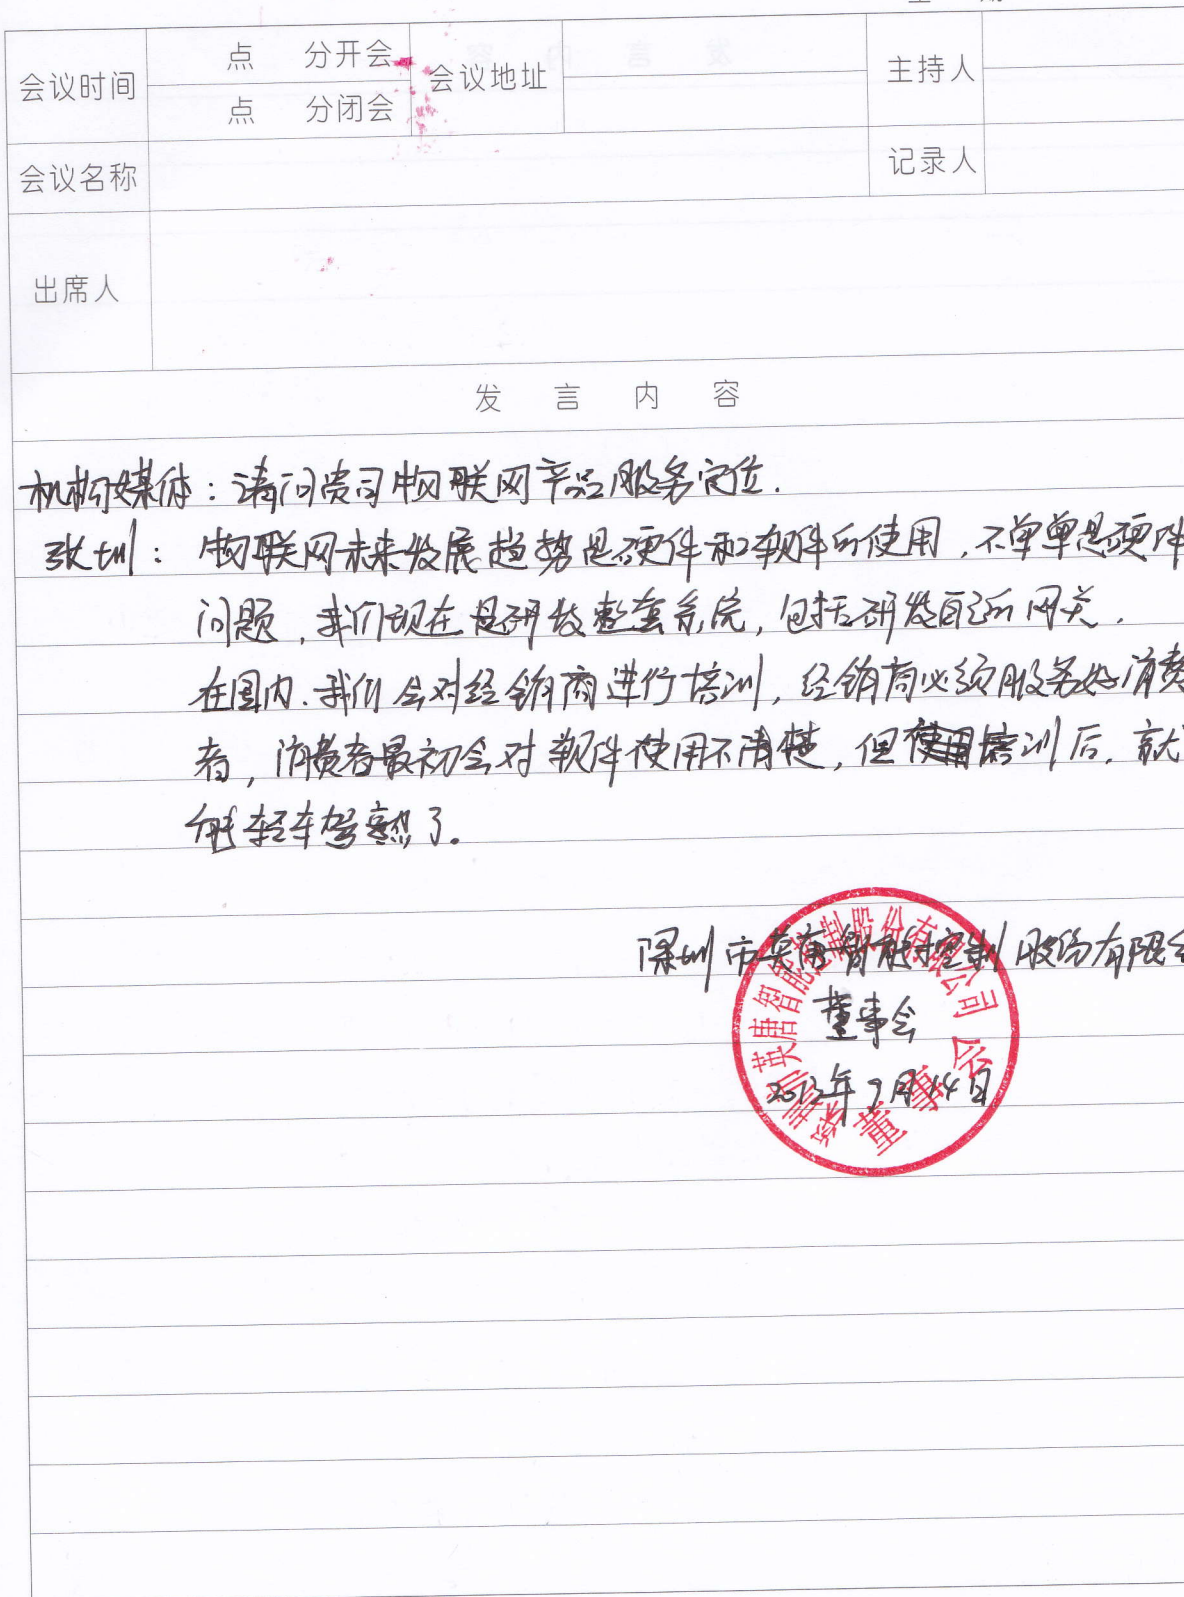 会议时间 点 分开会 会议地址 主持人
点 分闭会
会议名称 记录人
出席人
发 言 内 容
机构媒体：请问贵司物联网产品服务定位.
张圳：物联网未来发展趋势是硬件和软件的使用，不单单是硬件
问题，我们现在是研发整套系统，包括研发自己的网关.
在国内.我们会对经销商进行培训，经销商必须服务好消费
者，消费者最初会对软件使用不清楚，但使用培训后.就
能轻车驾熟了.
深圳市英唐智能控制股份有限公
董事会
2012年9月14日
深圳英唐智能控制股份有限公司
董事会